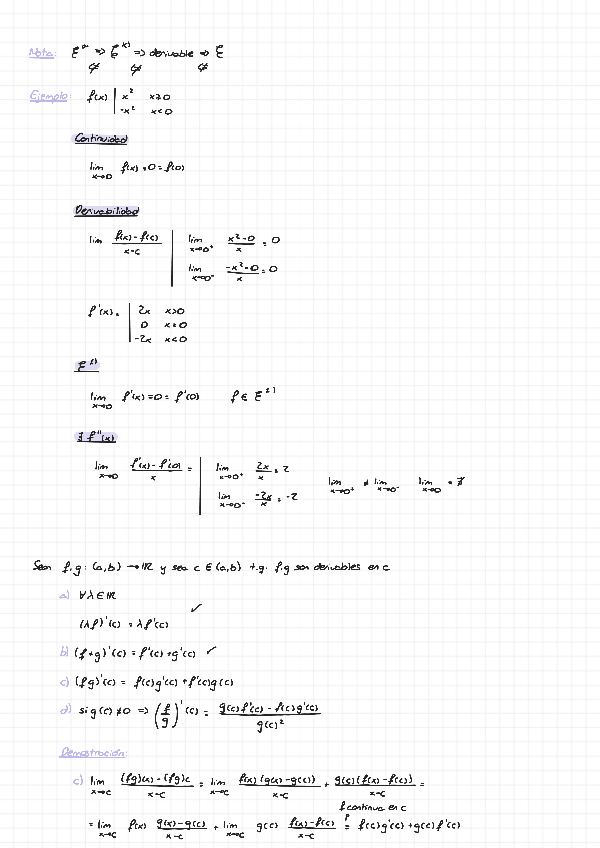 Nota: ξ^∞ => ξ^1) => derivable => ξ
⇍ ⇍ ⇍
Ejemplo: f(x) | x² x≥0
-x² x<0
Continuidad
lim x→0 f(x) = 0 = f(0)
Derivabilidad
lim (f(x) - f(c))/(x-c) | lim x→0⁺ (x²-0)/x = 0
lim x→0⁻ (-x²-0)/x = 0
f'(x) = | 2x x>0
0 x=0
-2x x<0
ξ^1)
lim x→0 f'(x) = 0 = f'(0) f ∈ ξ^1)
∃ f''(x)
lim x→0 (f'(x) - f'(0))/x = | lim x→0⁺ 2x/x = 2
lim x→0⁻ -2x/x = -2 lim x→0⁺ ≠ lim x→0⁻ lim x→0 = ∄
Sean f,g: (a,b) → ℝ y sea c ∈ (a,b) t.q. f,g son derivables en c
a) ∀λ ∈ ℝ
(λf)'(c) = λf'(c) ✓
b) (f+g)'(c) = f'(c) + g'(c) ✓
c) (fg)'(c) = f(c)g'(c) + f'(c)g(c)
d) si g(c) ≠ 0 => (f/g)'(c) = (g(c)f'(c) - f(c)g'(c))/g(c)²
Demostración:
c) lim x→c ((fg)(x) - (fg)c)/(x-c) = lim x→c (f(x)(g(x)-g(c)))/(x-c) + (g(c)(f(x)-f(c)))/(x-c) =
f continua en c
= lim x→c f(x) (g(x)-g(c))/(x-c) + lim x→c g(c) (f(x)-f(c))/(x-c) = f(c)g'(c) + g(c)f'(c)